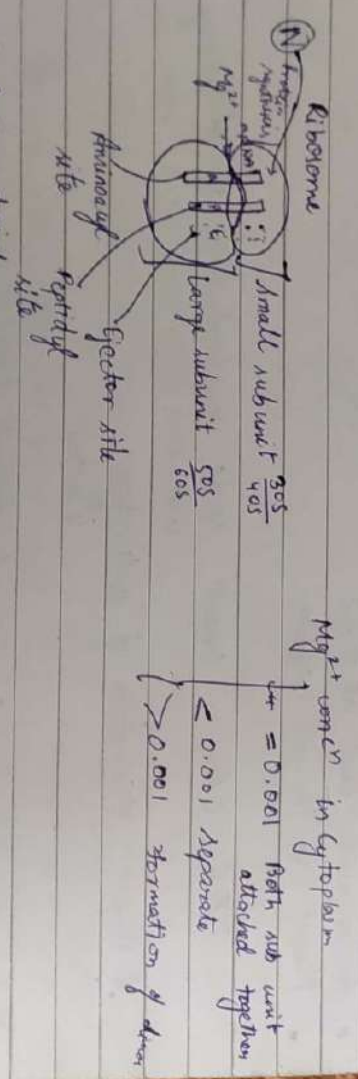 Ribosome
N
Protein
synthesis
Mg²⁺
small subunit 30S
40S
Large subunit 50S
60S
Ejector site
Peptidyl
site
Aminoacyl
site
Mg²⁺ concⁿ in Cytoplasm
= 0.001 Both sub unit
attached together
< 0.001 separate
> 0.001 formation of